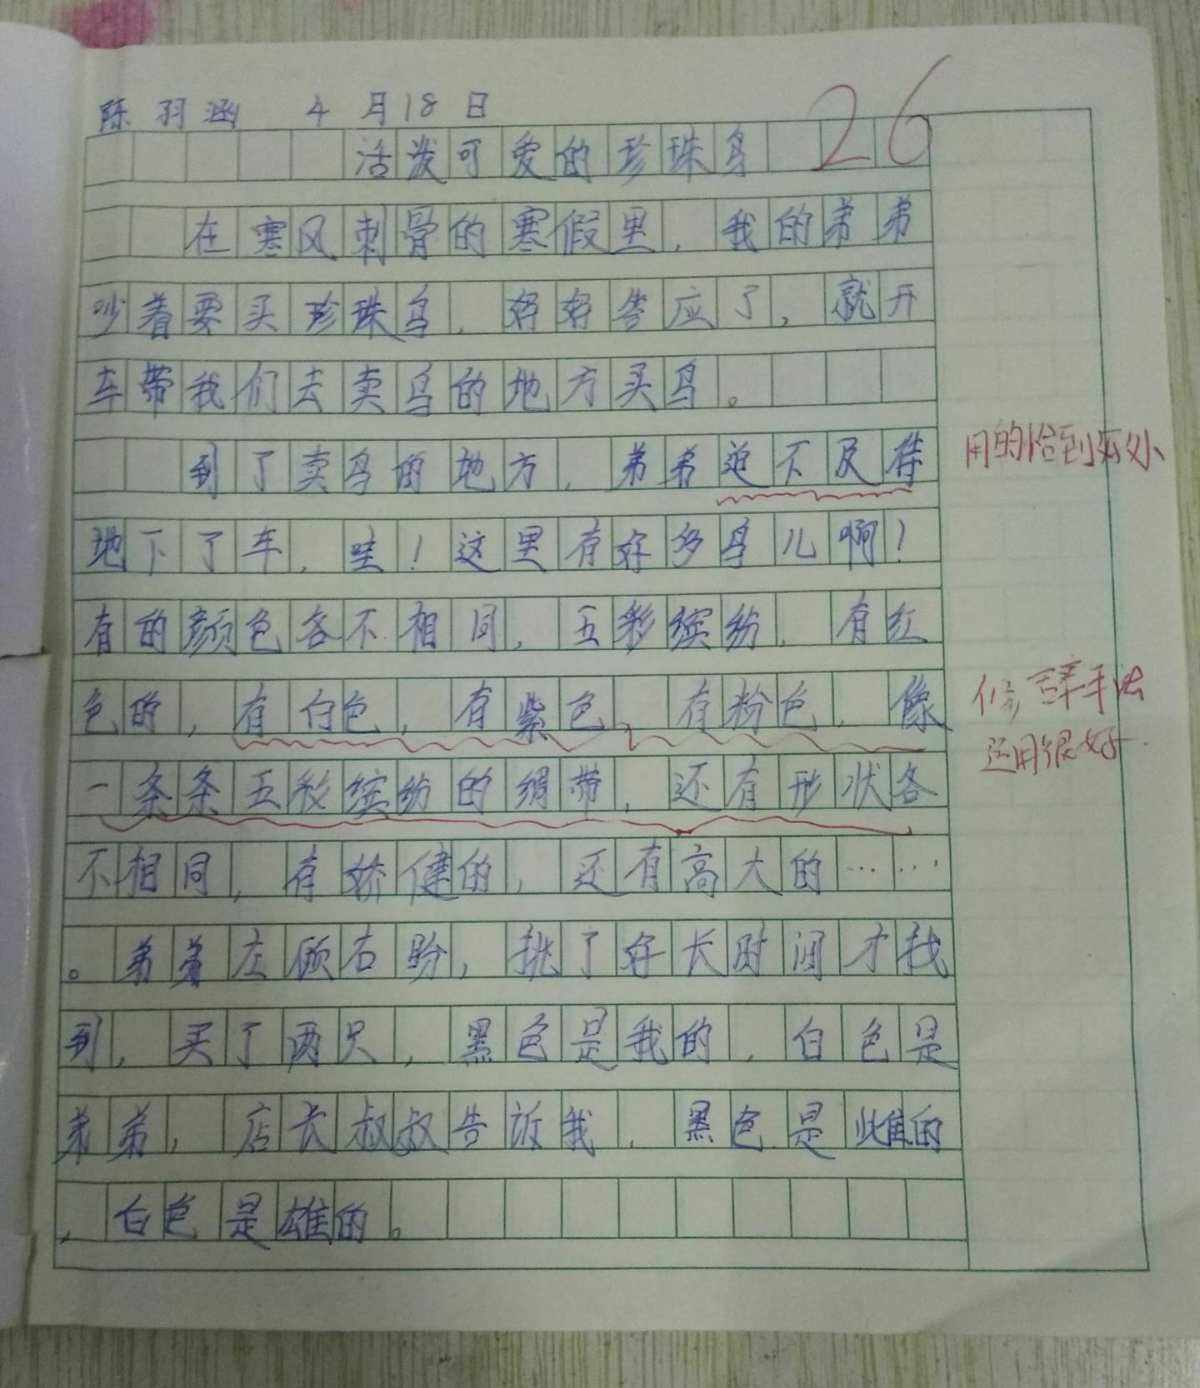 陈羽涵 4月18日
26
活泼可爱的珍珠鸟
在寒风刺骨的寒假里，我的弟弟
吵着要买珍珠鸟，好好答应了，就开
车带我们去卖鸟的地方买鸟。
到了卖鸟的地方，弟弟迫不及待
用的恰到好处
地下了车，哇！这里有好多鸟儿啊！
有的颜色各不相同，五彩缤纷，有红
色的，有白色，有紫色，有粉色，像
修辞手法
运用很好
一条条五彩缤纷的绸带，还有形状各
不相同，有娇健的，还有高大的……
。弟弟左顾右盼，挑了好长时间才找
到，买了两只，黑色是我的，白色是
弟弟，店长叔叔告诉我，黑色是雌的
，白色是雄的。